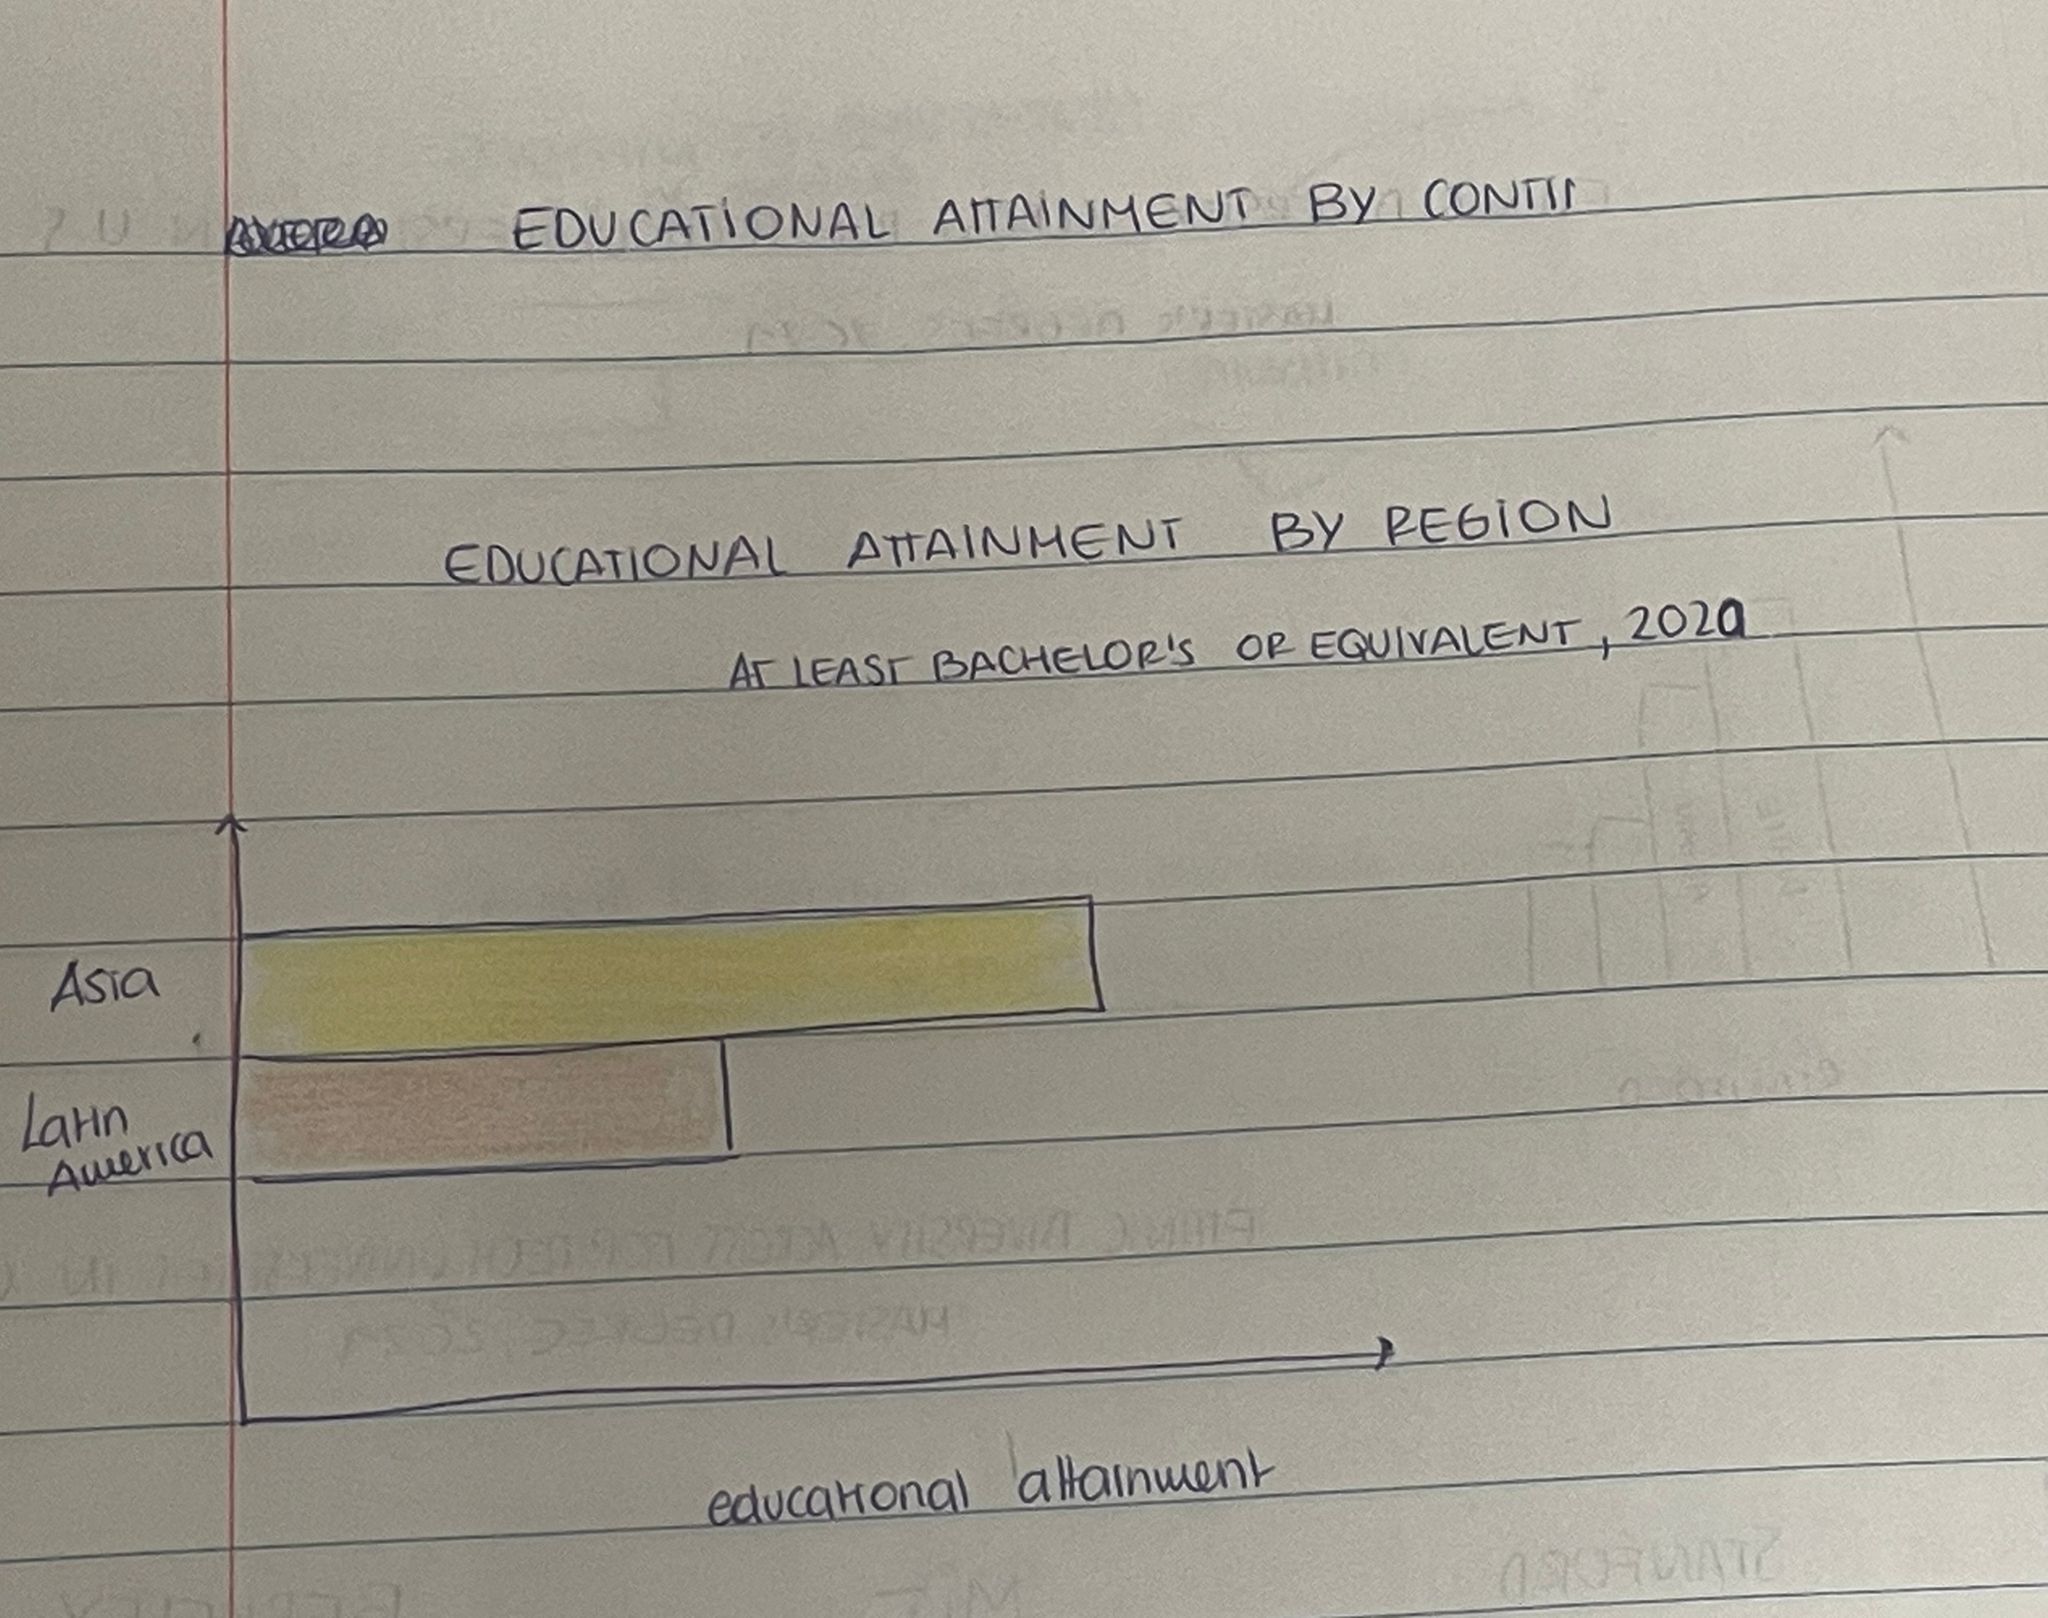 EDUCATIONAL ATTAINMENT BY CONTIN
EDUCATIONAL ATTAINMENT BY REGION
AT LEAST BACHELOR'S OR EQUIVALENT, 2020
Asia
Latin
America
educational attainment